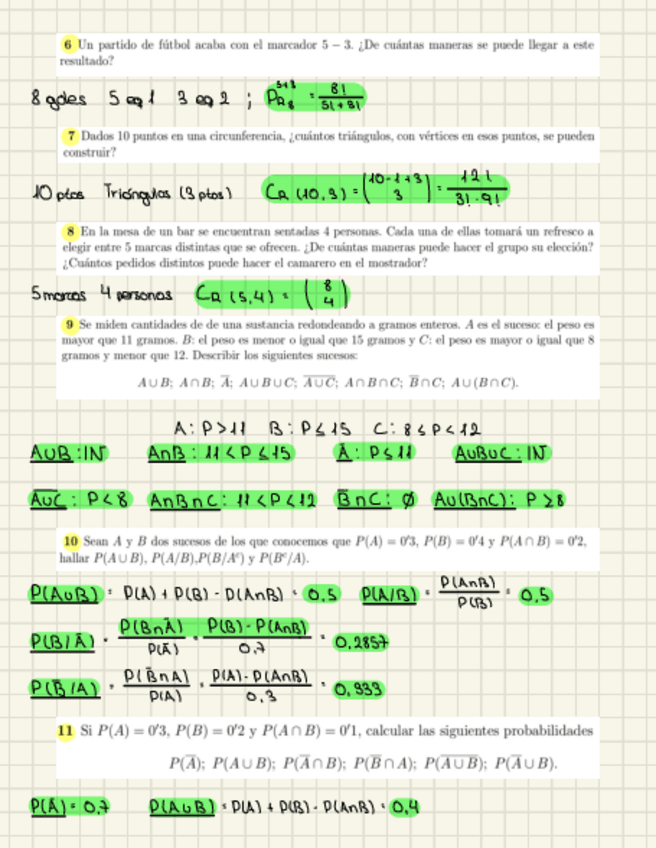 6 Un partido de fútbol acaba con el marcador 5 − 3. ¿De cuántas maneras se puede llegar a este
resultado?
8 goles 5 eq 1 3 eq 2 ; PR₈⁵⁺³ = 8! / 5! + 3!
7 Dados 10 puntos en una circunferencia, ¿cuántos triángulos, con vértices en esos puntos, se pueden
construir?
10 ptos Triángulos (3 ptos) CR (10,3) = (10-1+3 / 3) = 12! / 3!·9!
8 En la mesa de un bar se encuentran sentadas 4 personas. Cada una de ellas tomará un refresco a
elegir entre 5 marcas distintas que se ofrecen. ¿De cuántas maneras puede hacer el grupo su elección?
¿Cuántos pedidos distintos puede hacer el camarero en el mostrador?
5 marcas 4 personas CR (5,4) = (8 / 4)
9 Se miden cantidades de de una sustancia redondeando a gramos enteros. A es el suceso: el peso es
mayor que 11 gramos. B: el peso es menor o igual que 15 gramos y C: el peso es mayor o igual que 8
gramos y menor que 12. Describir los siguientes sucesos:
A∪B; A∩B; A̅; A∪B∪C; A̅∪̅C̅; A∩B∩C; B̅∩C; A∪(B∩C).
A: P>11 B: P≤15 C: 8≤P<12
A∪B: IN A∩B: 11<P≤15 A̅: P≤11 A∪B∪C: IN
A̅∪̅C̅: P<8 A∩B∩C: 11<P<12 B̅∩C: ∅ A∪(B∩C): P≥8
10 Sean A y B dos sucesos de los que conocemos que P(A) = 0'3, P(B) = 0'4 y P(A∩B) = 0'2,
hallar P(A∪B), P(A/B),P(B/Aᶜ) y P(Bᶜ/A).
P(A∪B) = P(A) + P(B) - P(A∩B) = 0,5 P(A/B) = P(A∩B) / P(B) = 0,5
P(B/A̅) = P(B∩A̅) / P(A̅) = P(B) - P(A∩B) / 0,7 = 0,2857
P(B̅/A) = P(B̅∩A) / P(A) = P(A) - P(A∩B) / 0,3 = 0,333
11 Si P(A) = 0'3, P(B) = 0'2 y P(A∩B) = 0'1, calcular las siguientes probabilidades
P(A̅); P(A∪B); P(A̅∩B); P(B̅∩A); P(A̅∪̅B̅); P(A̅∪B).
P(A̅) = 0,7 P(A∪B) = P(A) + P(B) - P(A∩B) = 0,4